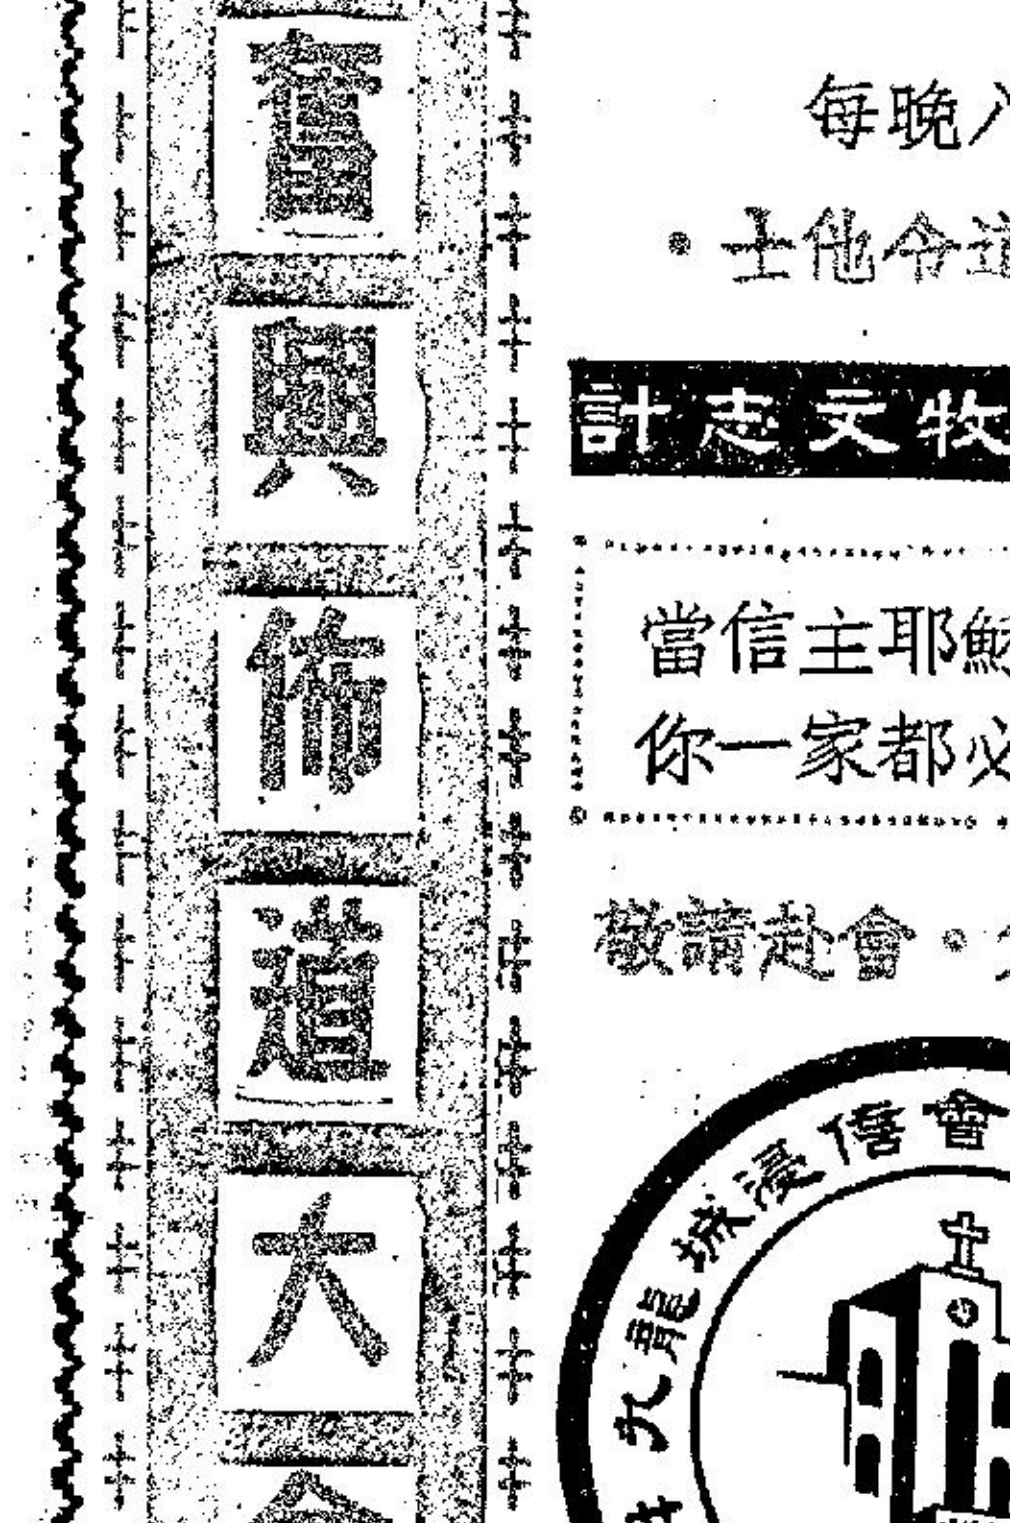 奮興佈道大會
每晚八
士他令道
計志文牧
當信主耶穌
你一家都必
敬請赴會。
九龍城浸信會